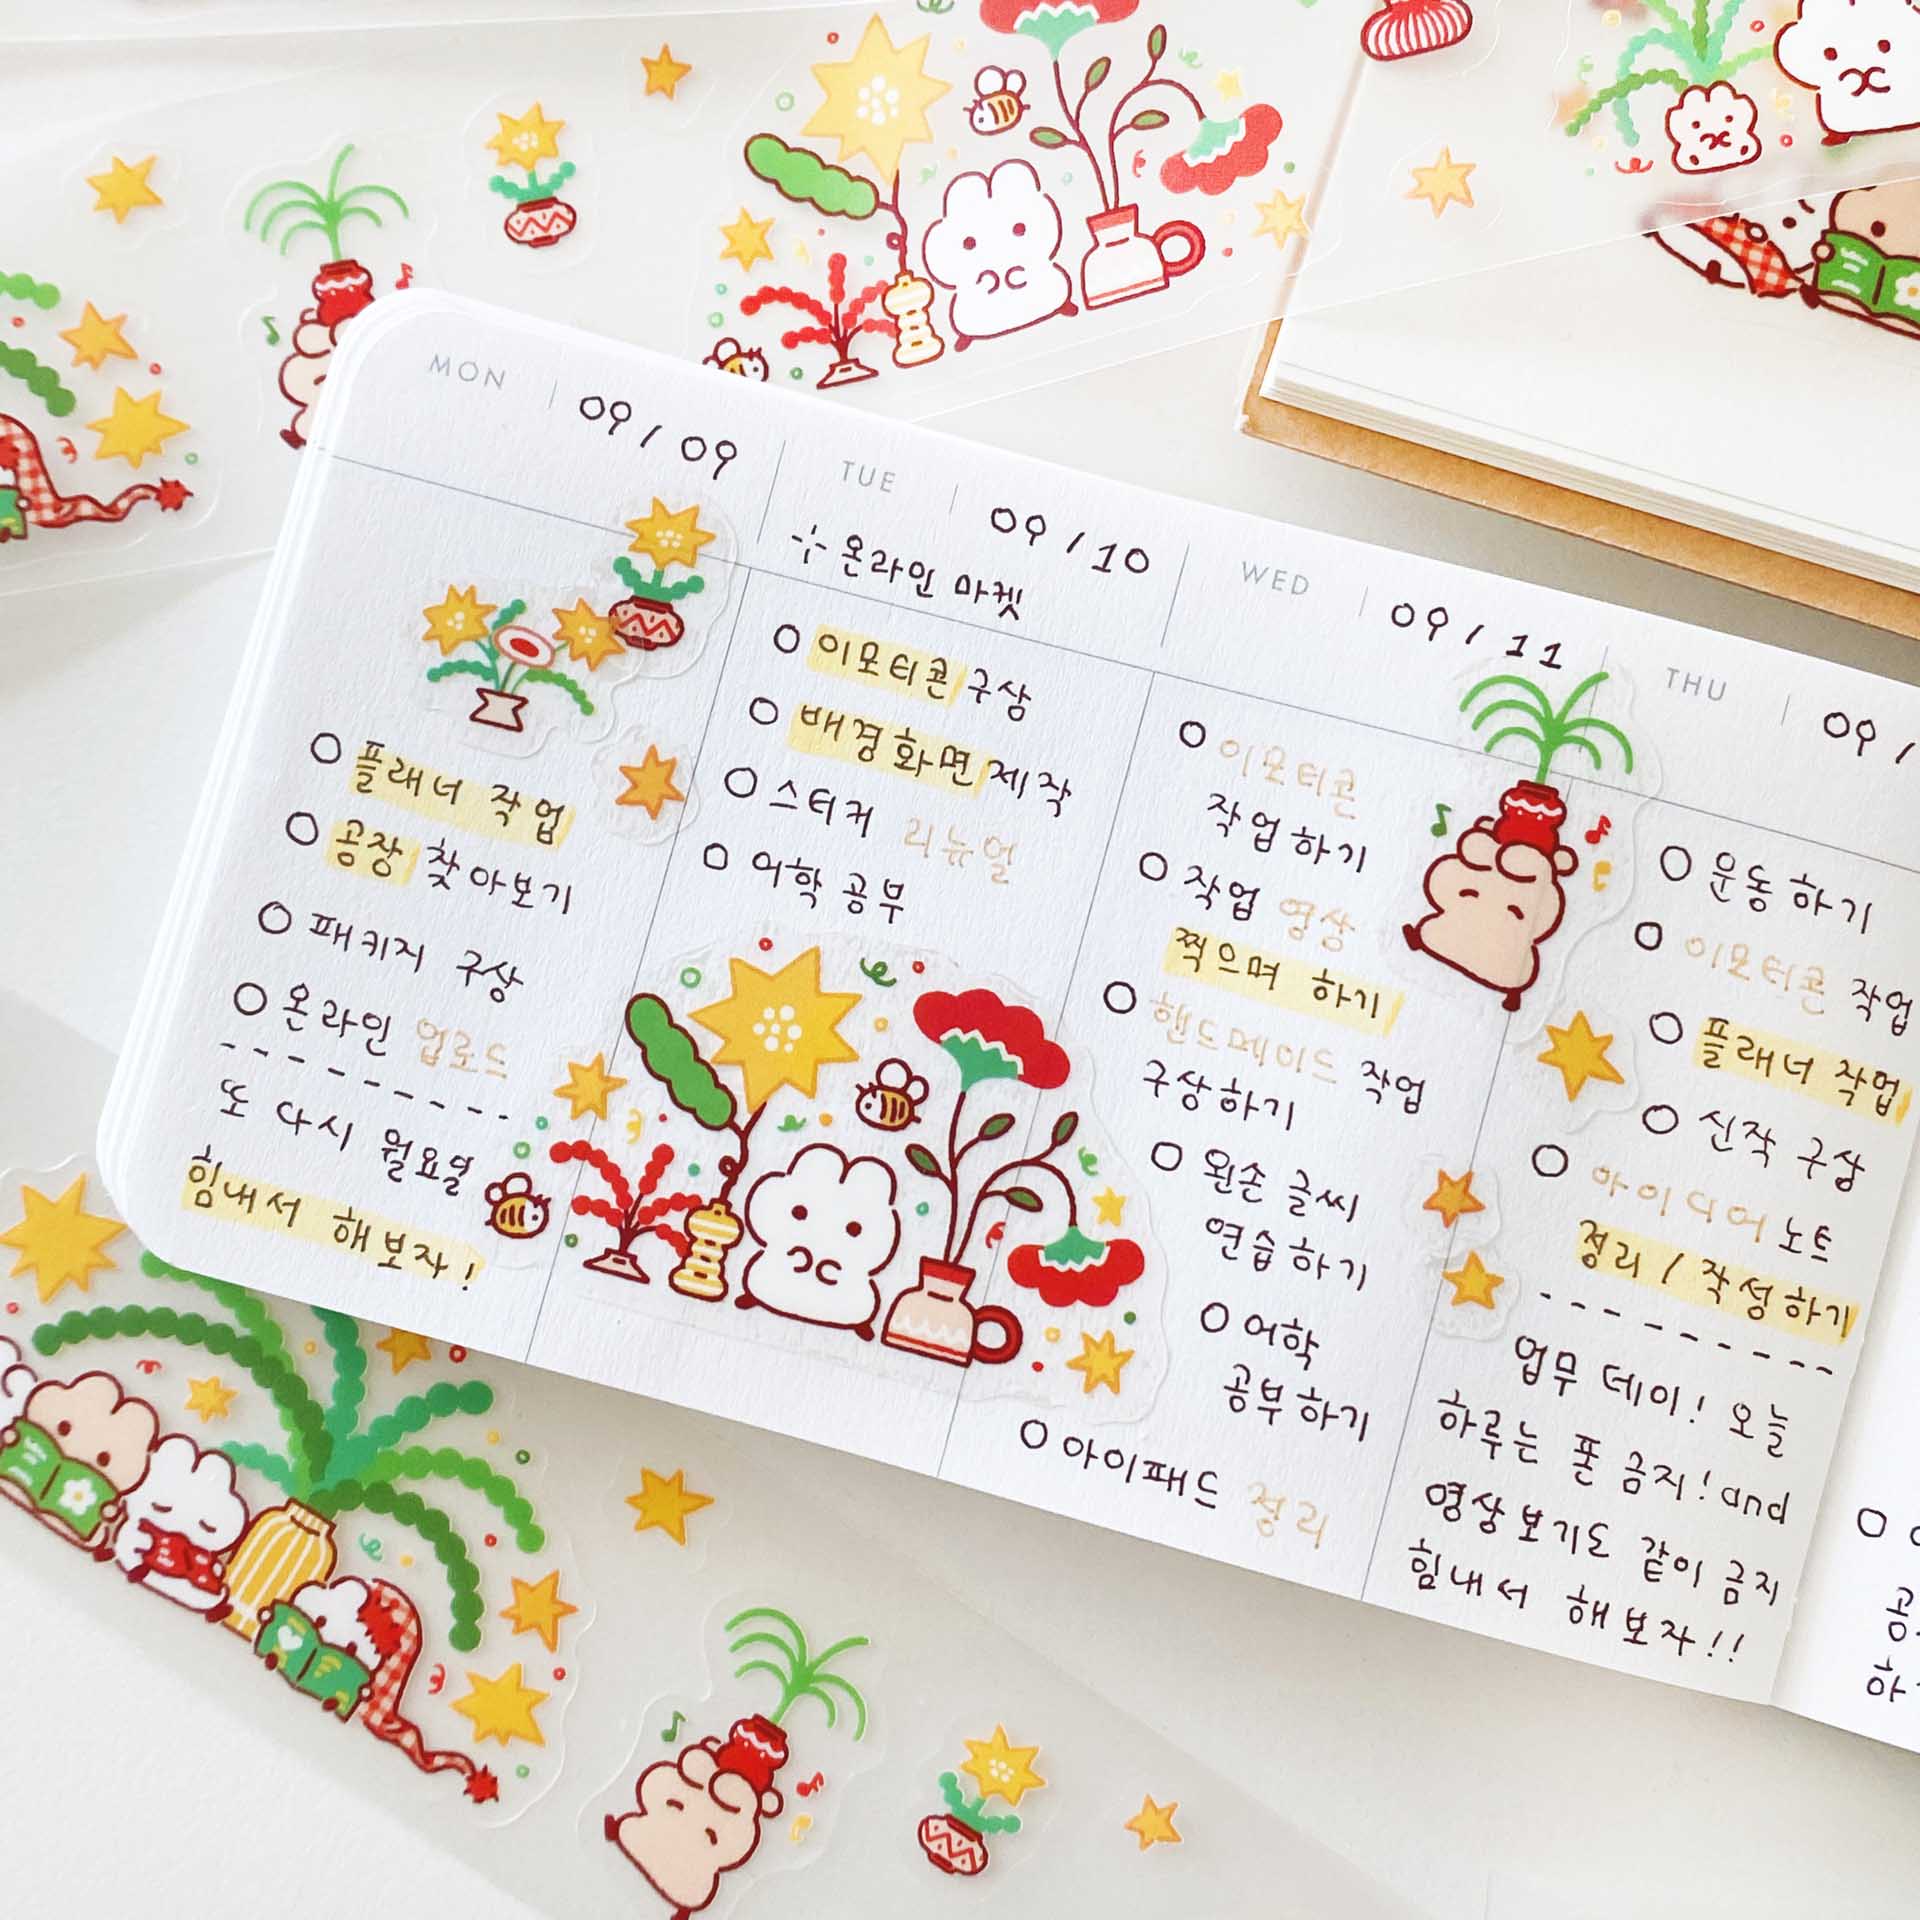 MON 09/09
플래너 작업
공장 찾아보기
패키지 구상
온라인 업로드
또 다시 월요일
힘내서 해보자!
TUE 09/10
온라인 마켓
이모티콘 구상
배경화면 제작
스티커 리뉴얼
어학 공부
WED 09/11
이모티콘
작업하기
작업 영상
찍으며 하기
핸드메이드 작업
구상하기
왼손 글씨
연습하기
어학
공부하기
아이패드 정리
THU 09/
운동하기
이모티콘 작업
플래너 작업
신작 구상
아이디어 노트
정리/작성하기
업무 데이! 오늘
하루는 폰 금지! and
영상보기도 같이 금지
힘내서 해보자!!